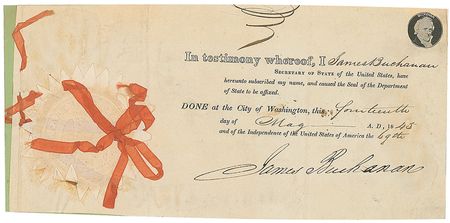 In testimony whereof, I James Buchanan
SECRETARY OF STATE of the United States, have
hereunto subscribed my name, and caused the Seal of the Department
of State to be affixed.
DONE at the City of Washington, this fourteenth
day of May A. D., 1845
and of the Independence of the United States of America the 69th.
James Buchanan